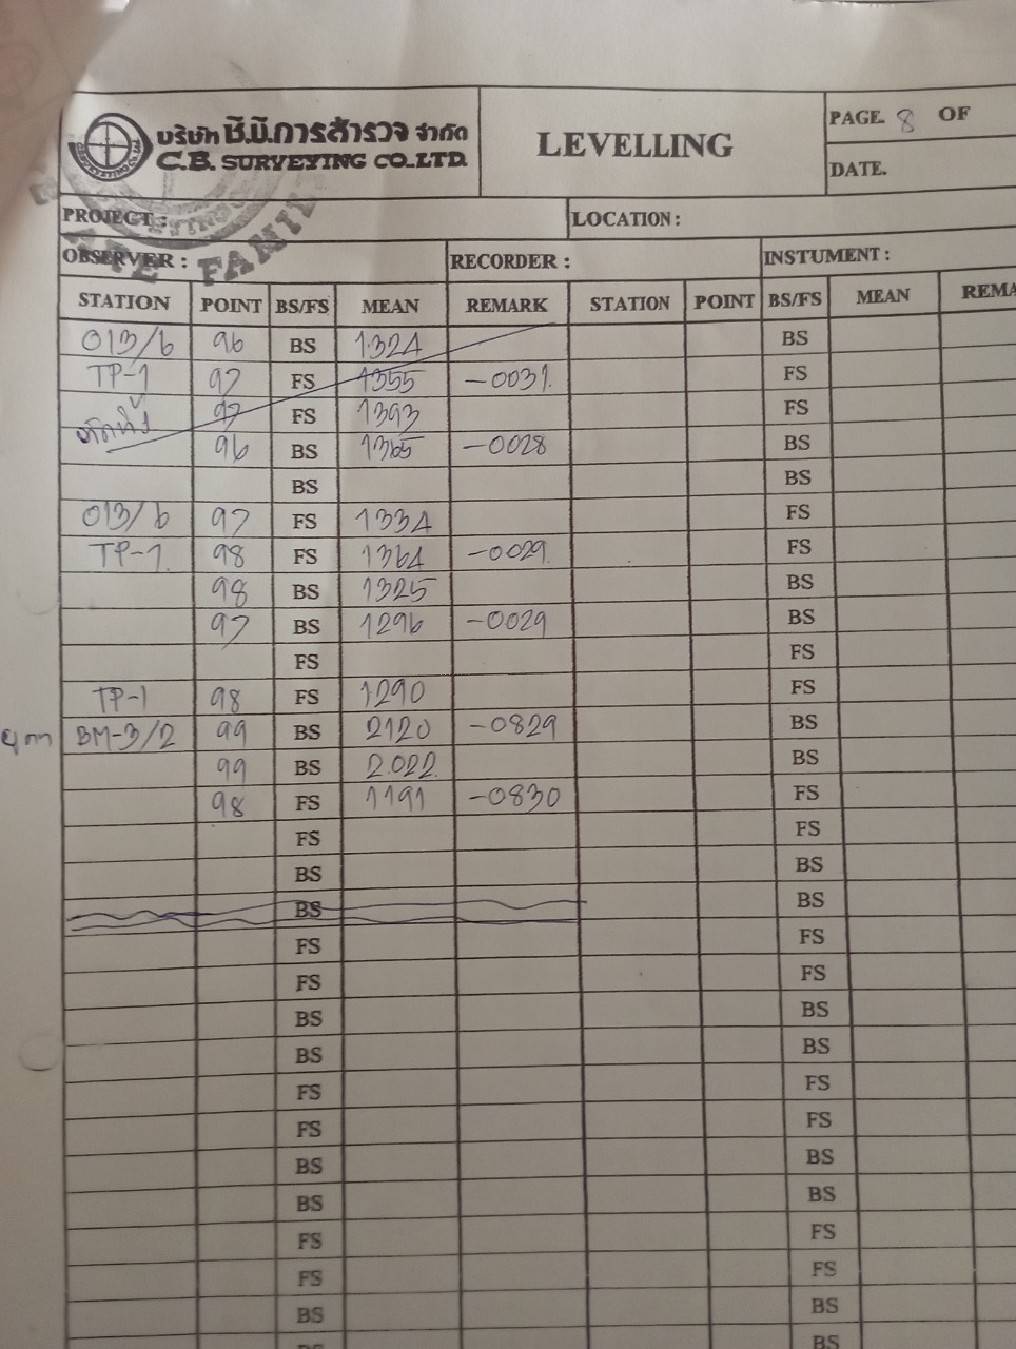 บริษัท ซี.บี.การสำรวจ จำกัด
C.B. SURVEYING CO.,LTD.
LEVELLING
PAGE. 8 OF
DATE.
PROJECT :
LOCATION :
OBSERVER :
RECORDER :
INSTUMENT :
FAMIL
STATION POINT BS/FS MEAN REMARK STATION POINT BS/FS MEAN REMA
013/6 96 BS 1.324 BS
TP-1 97 FS 1355 -0031. FS
97 FS 1393 FS
96 BS 1365 -0028 BS
BS BS
013/6 97 FS 1334 FS
TP-1. 98 FS 1364 -0029. FS
98 BS 1325 BS
97 BS 1296 -0029 BS
FS FS
TP-1 98 FS 1.290 FS
BM-3/2 99 BS 2120 -0829 BS
99 BS 2.022. BS
98 FS 1191 -0830 FS
FS FS
BS BS
BS BS
FS FS
FS FS
BS BS
BS BS
FS FS
FS FS
BS BS
BS BS
FS FS
FS FS
BS BS
BS